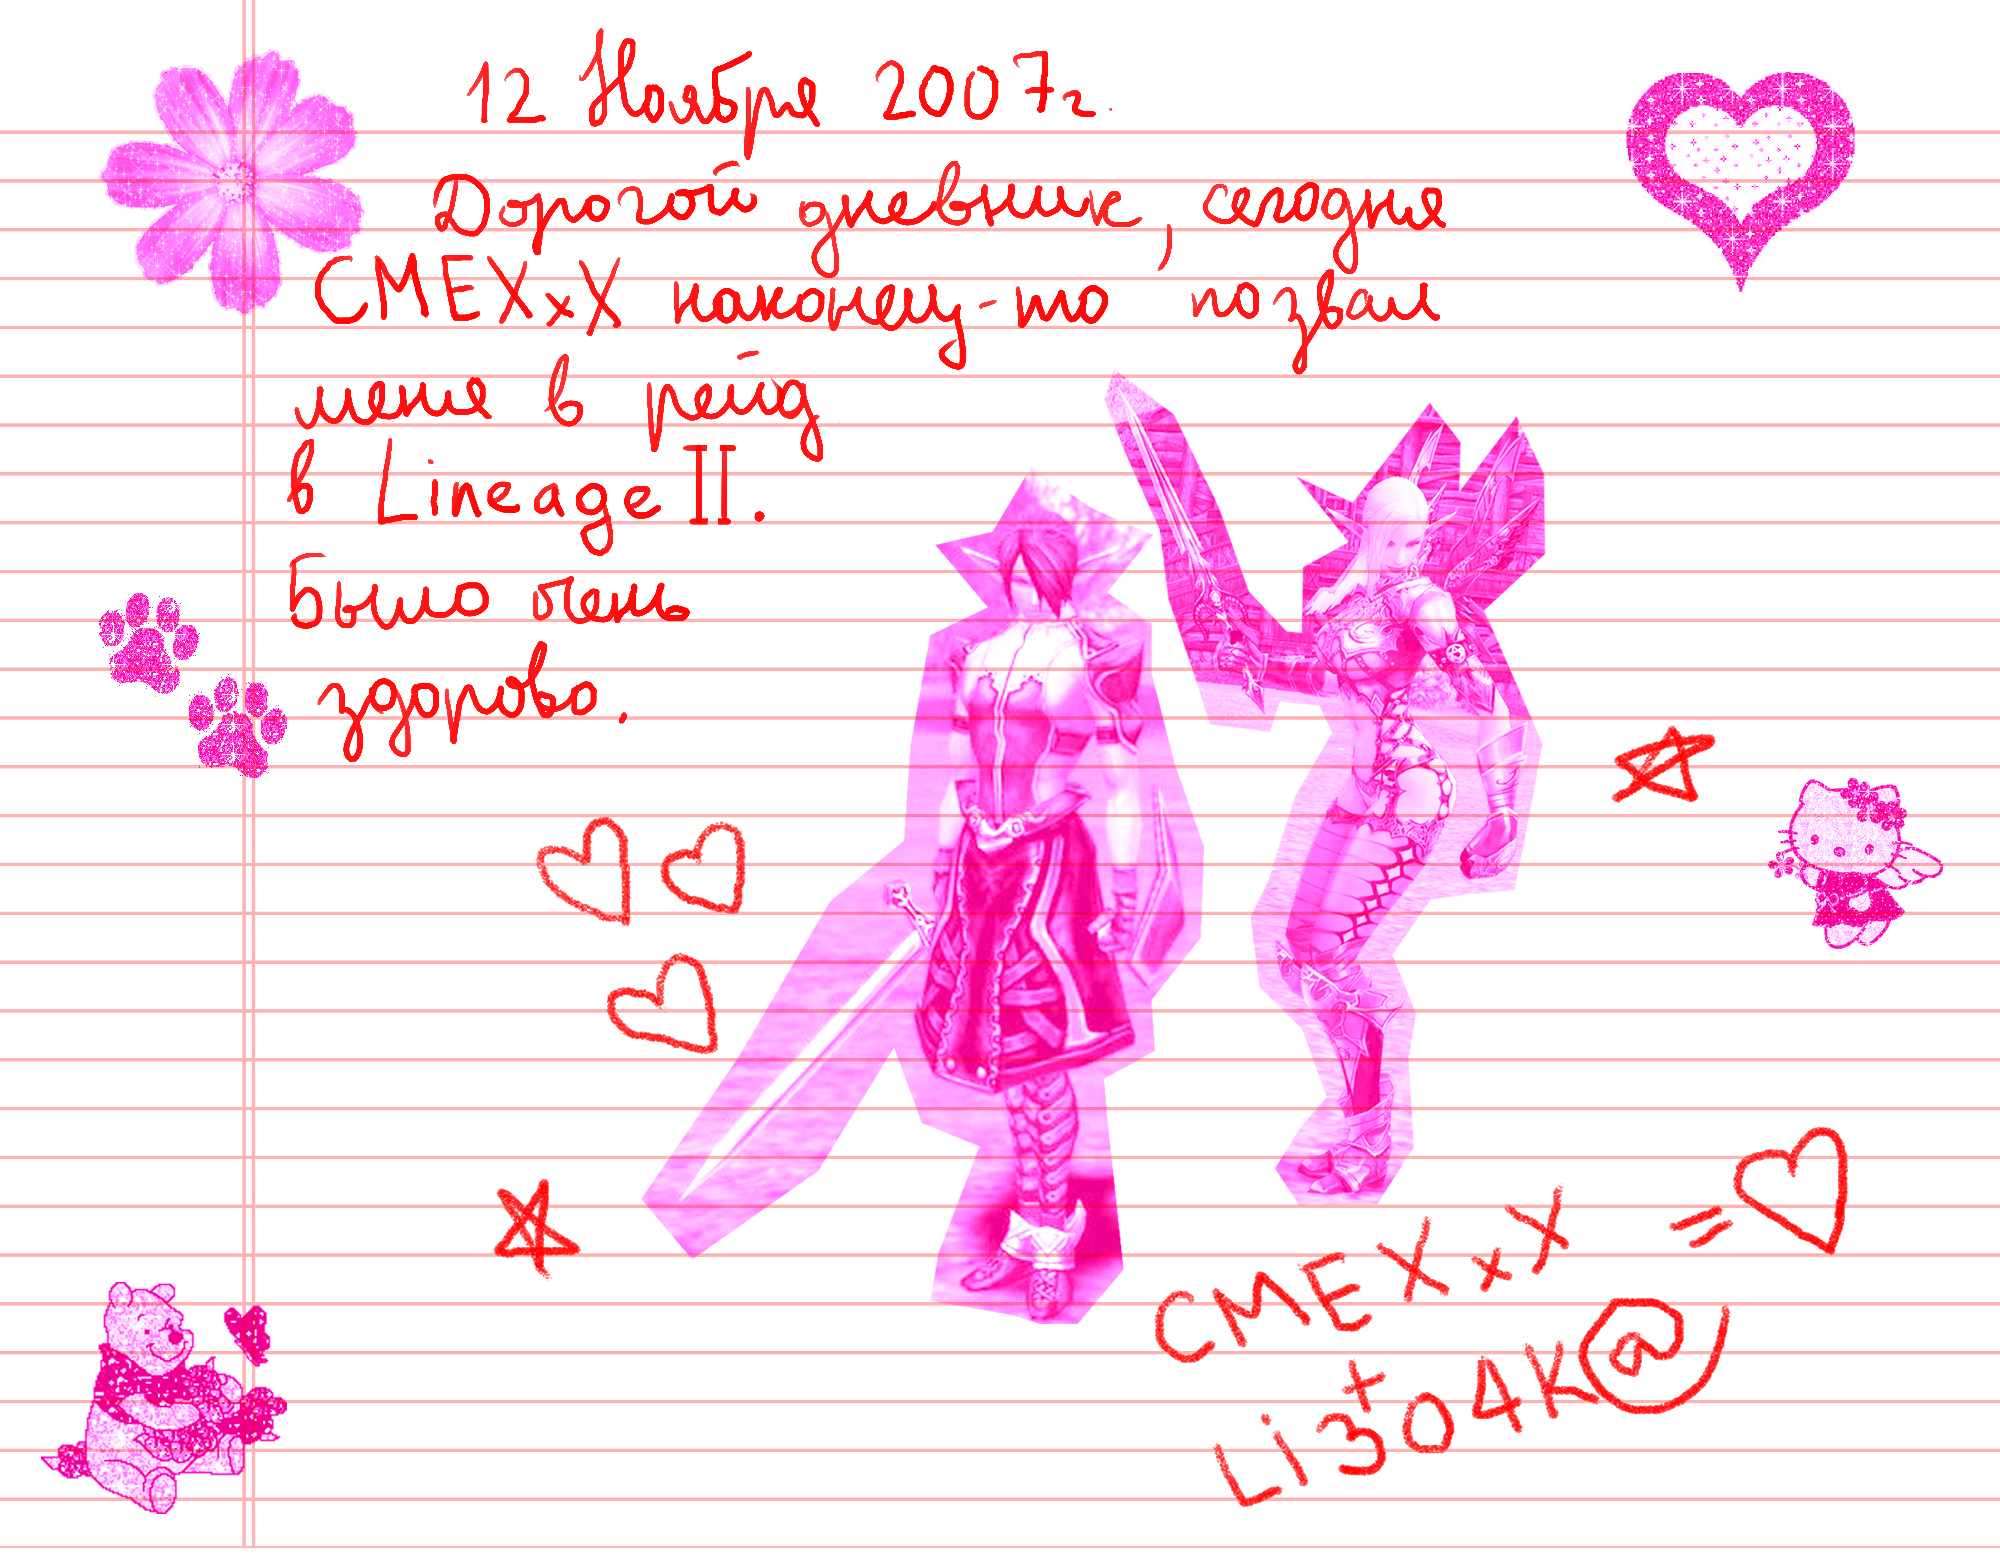 12 Ноября 2007г.
Дорогой дневник, сегодня
СМЕХxX наконец-то позвал
меня в рейд
в Lineage II.
Было очень
здорово.
СМЕХxX =
+
Li3O4K@